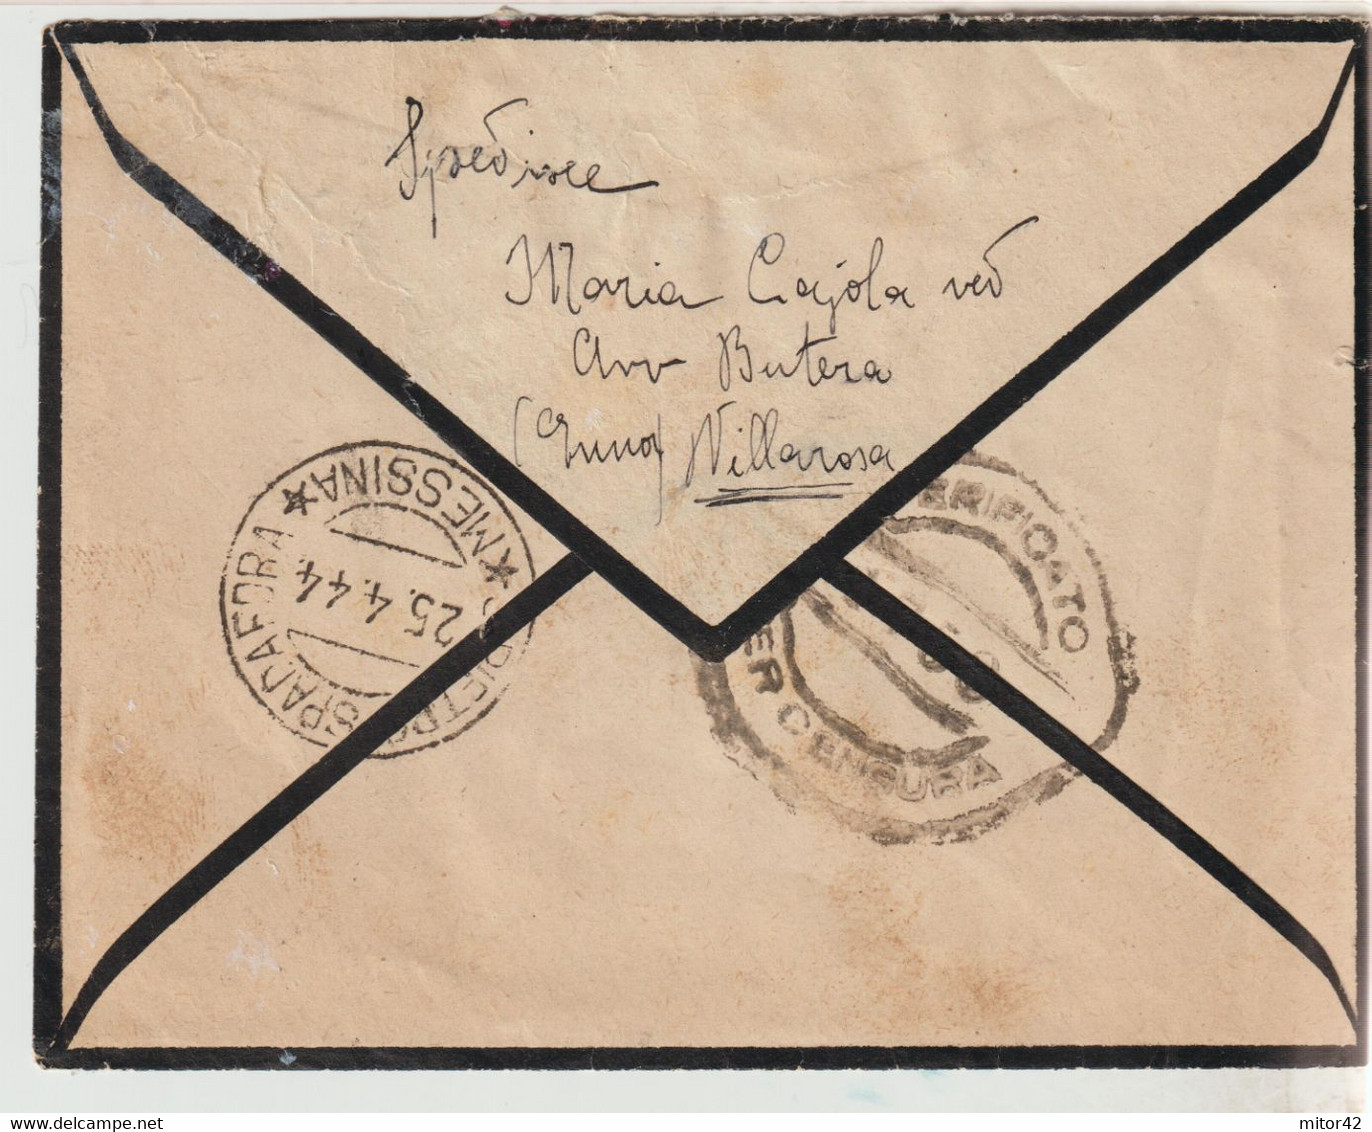 Spedisce
Maria Cajola ved
Avv Butera
(Enna) Villarosa
VERIFICATO
PER CENSURA
SPADAFORA S. PIETRO
25.4.44.
★ MESSINA ★
mitor42